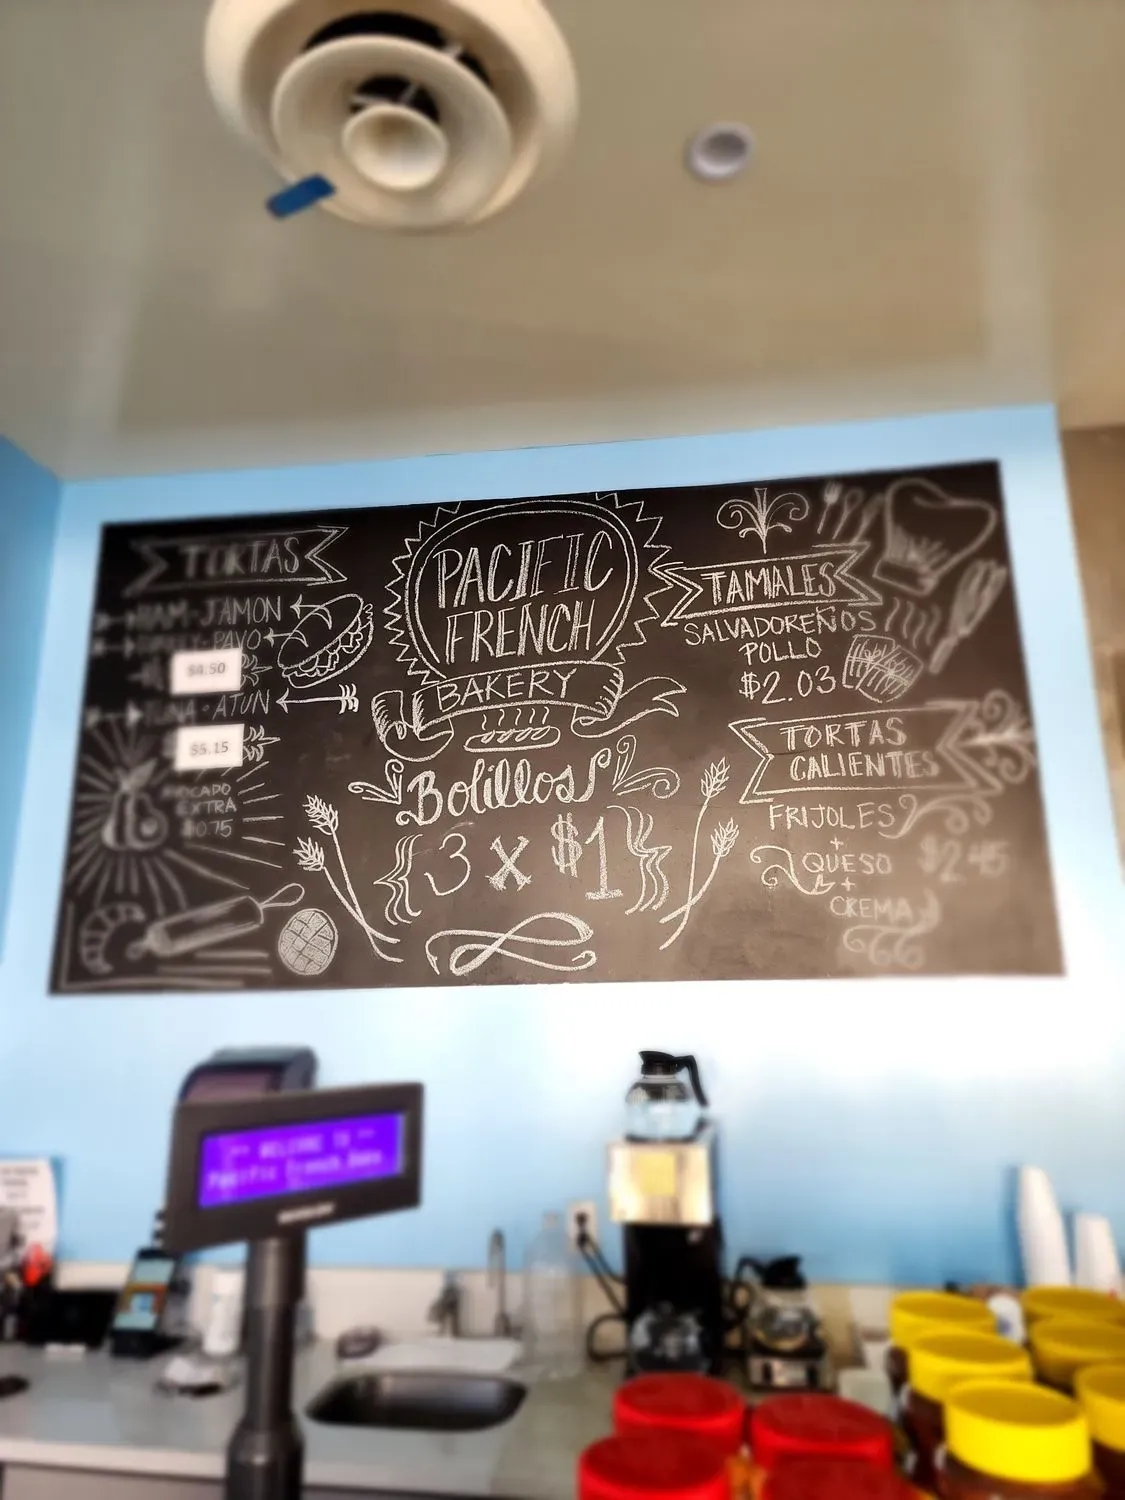 TORTAS
HAM-JAMON
TURKEY-PAVO
$4.50
TUNA-ATUN
$5.15
AVOCADO
EXTRA
$0.75
PACIFIC
FRENCH
BAKERY
Bolillos
3 x $1
TAMALES
SALVADOREÑOS
POLLO
$2.03
TORTAS
CALIENTES
FRIJOLES
+
QUESO $2.45
+
CREMA
** WELCOME TO **
Pacific French Bake